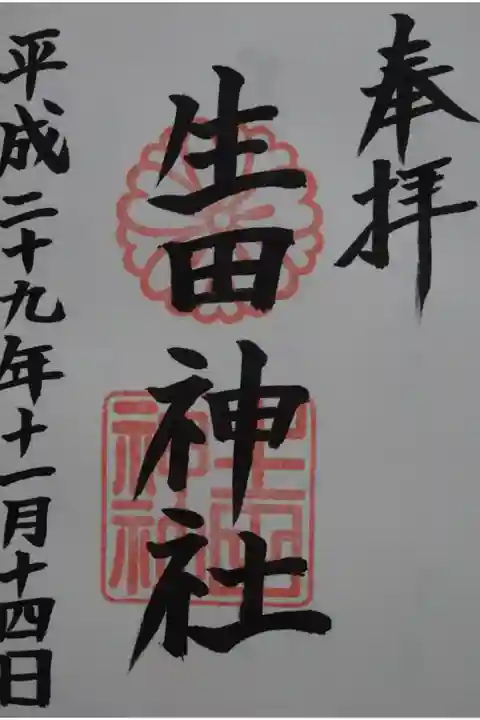 奉拝
生田神社
平成二十九年十一月十四日